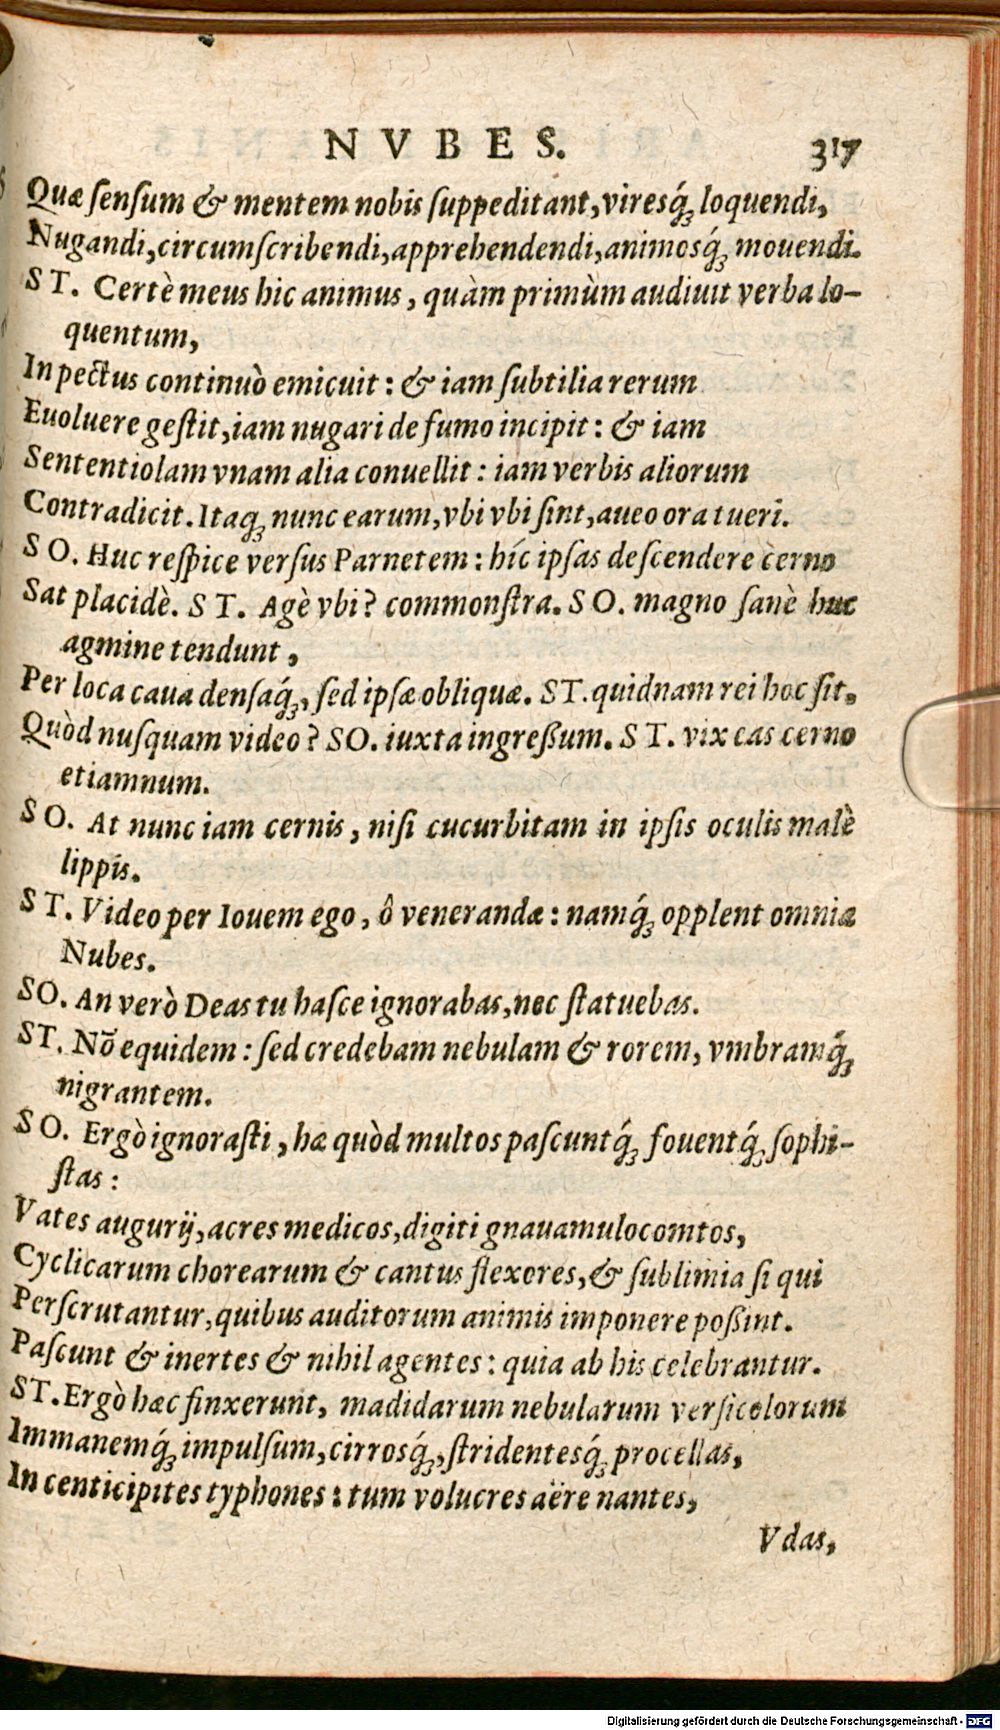 NVBES. 317
Quæ ſenſum & mentem nobis ſuppeditant, viresq́ꝫ loquendi,
Nugandi, circumſcribendi, apprehendendi, animosq́ꝫ mouendi.
ST. Certè meus hic animus, quàm primùm audiuit verba lo-
quentum,
In pectus continuò emicuit: & iam ſubtilia rerum
Euoluere geſtit, iam nugari de fumo incipit: & iam
Sententiolam vnam alia conuellit: iam verbis aliorum
Contradicit. Itaqꝫ nunc earum, vbi vbi ſint, aueo ora tueri.
SO. Huc reſpice verſus Parnetem: hîc ipſas deſcendere cerno
Sat placidè. ST. Agè vbi? commonſtra. SO. magno ſanè huc
agmine tendunt,
Per loca caua denſaq́ꝫ, ſed ipſæ obliquæ. ST. quidnam rei hoc ſit,
Quòd nuſquam video? SO. iuxta ingreßum. ST. vix eas cerno
etiamnum.
SO. At nunc iam cernis, niſi cucurbitam in ipſis oculis malè
lippis.
ST. Video per Iouem ego, ô venerandæ: namq́ꝫ opplent omnia
Nubes.
SO. An verò Deas tu haſce ignorabas, nec ſtatuebas.
ST. Nõ equidem: ſed credebam nebulam & rorem, vmbramq́ꝫ
nigrantem.
SO. Ergò ignoraſti, hæ quòd multos paſcuntq́ꝫ fouentq́ꝫ ſophi-
ſtas:
Vates augurij, acres medicos, digiti gnauamulocomtos,
Cyclicarum chorearum & cantus flexores, & ſublimia ſi qui
Perſcrutantur, quibus auditorum animis imponere poßint.
Paſcunt & inertes & nihil agentes: quia ab his celebrantur.
ST. Ergò hæc finxerunt, madidarum nebularum verſicolorum
Immanemq́ꝫ impulſum, cirrosq́ꝫ, ſtridentesq́ꝫ procellas,
In centicipites typhones: tum volucres aëre nantes,
Vdas,
Digitalisierung gefördert durch die Deutsche Forschungsgemeinschaft - DFG